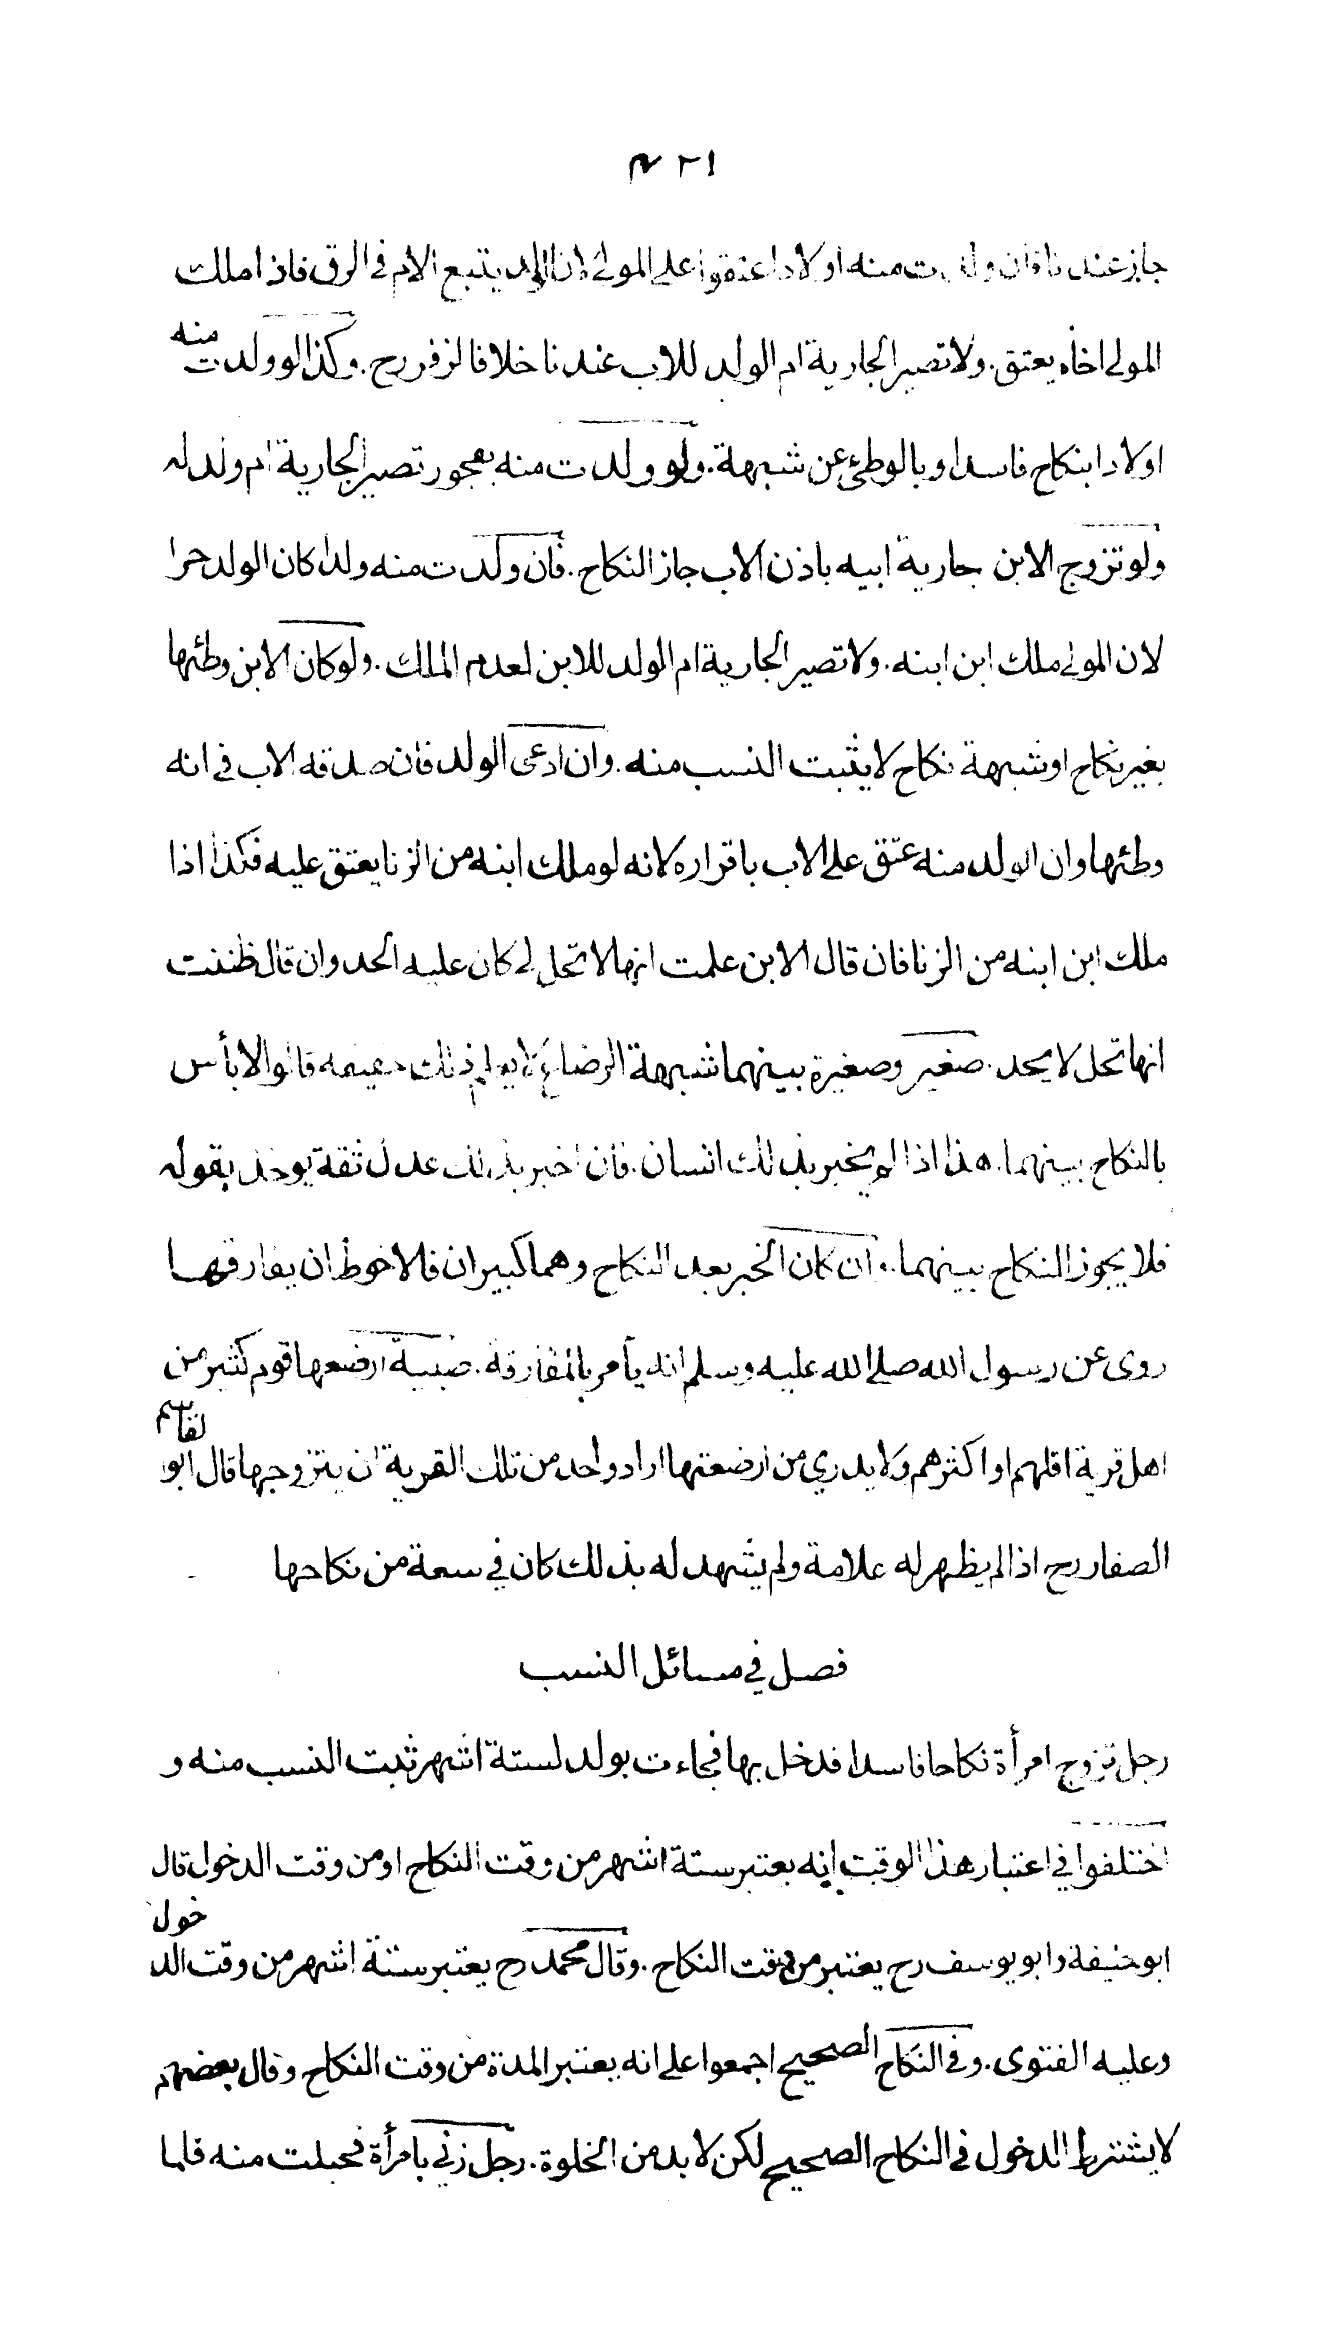 ٤٢١
جاز عندنا فان ولدت منه اولادا عتقوا على المولى لان الولد يتبع الام في الرق فاذا ملك
المولى اخاه يعتق. ولا تصير الجارية ام الولد للاب عندنا خلافا لزفر رح. وكذا لو ولدت منه
اولادا بنكاح فاسد او بالوطئ عن شبهة. ولو ولدت منه بفجور تصير الجارية ام ولد له
ولو تزوج الابن جارية ابيه باذن الاب جاز النكاح. فان ولدت منه ولدا كان الولد حرا
لان المولى ملك ابن ابنه. ولا تصير الجارية ام الولد للابن لعدم الملك. ولو كان الابن وطئها
بغير نكاح او شبهة نكاح لا يثبت النسب منه. وان ادعى الولد فان صدقه الاب في انه
وطئها وان الولد منه عتق على الاب باقراره لانه لو ملك ابنه من الزنا يعتق عليه فكذا اذا
ملك ابن ابنه من الزنا فان قال الابن علمت انها لا تحل لي كان عليه الحد وان قال ظننت
انها تحل لا يحد. صغير وصغيرة بينهما شبهة الرضاع لا يعلم ذلك حقيقة قالوا لا بأس
بالنكاح بينهما. هذا اذا لم يخبر بذلك انسان. فان اخبر بذلك عدل ثقة يوخذ بقوله
فلا يجوز النكاح بينهما. وان كان الخبر بعد النكاح وهما كبيران فالاحوط ان يفارقها
روى عن رسول الله صلى الله عليه وسلم انه يأمر بالمفارقة. صبية ارضعها قوم كثير من
اهل قرية اقلهم او اكثرهم ولا يدري من ارضعتها اراد واحد من تلك القرية ان يتزوجها قال ابو القاسم
الصفار رح اذا لم يظهر له علامة ولم يشهد له بذلك كان في سعة من نكاحها
فصل في مسائل النسب
رجل تزوج امرأة نكاحا فاسدا فدخل بها فجاءت بولد لستة اشهر ثبت النسب منه و
اختلفوا في اعتبار هذا الوقت انه يعتبر ستة اشهر من وقت النكاح او من وقت الدخول قال
ابو حنيفة وابو يوسف رح يعتبر من وقت النكاح. وقال محمد رح يعتبر ستة اشهر من وقت الدخول
وعليه الفتوى. وفي النكاح الصحيح اجمعوا على انه يعتبر المدة من وقت النكاح وقال بعضهم
لا يشترط الدخول في النكاح الصحيح لكن لا بد من الخلوة. رجل زنى بامرأة فحبلت منه فلما